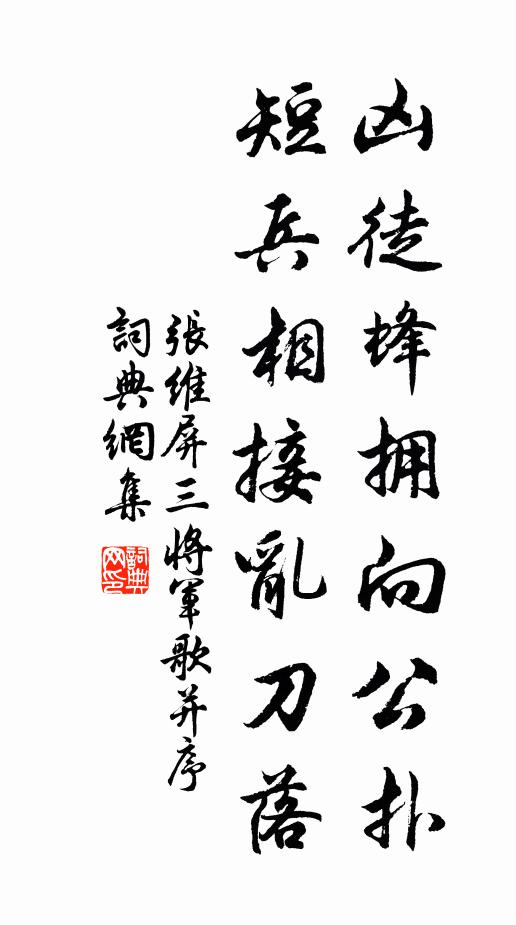 凶徒蜂拥向公扑
短兵相接亂刀落
張維屏三將軍歌并序
詞典網集
詞典網印